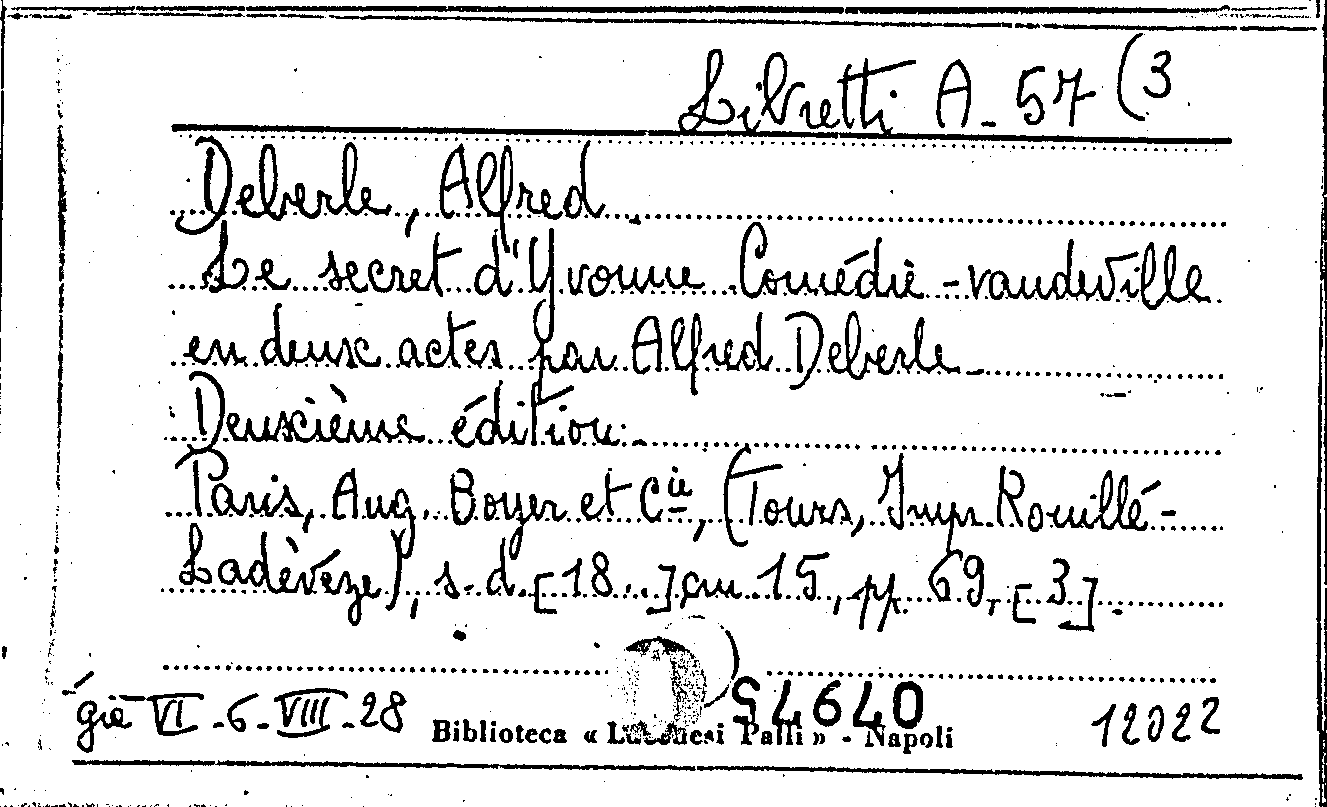 Libretti A - 57 (3
Deberle, Alfred.
Le secret d'Yvonne Comédie-vaudeville
en deux actes par Alfred Deberle -
Deuxième édition. -
Paris, Aug. Boyer et Cie, (Tours, Impr. Rouillé-
Ladevèze), s.d. [18..] cm 15, pp. 69, [3].
54640
già VI - 6 - VIII - 28 Biblioteca « Lucchesi Palli » - Napoli 12022